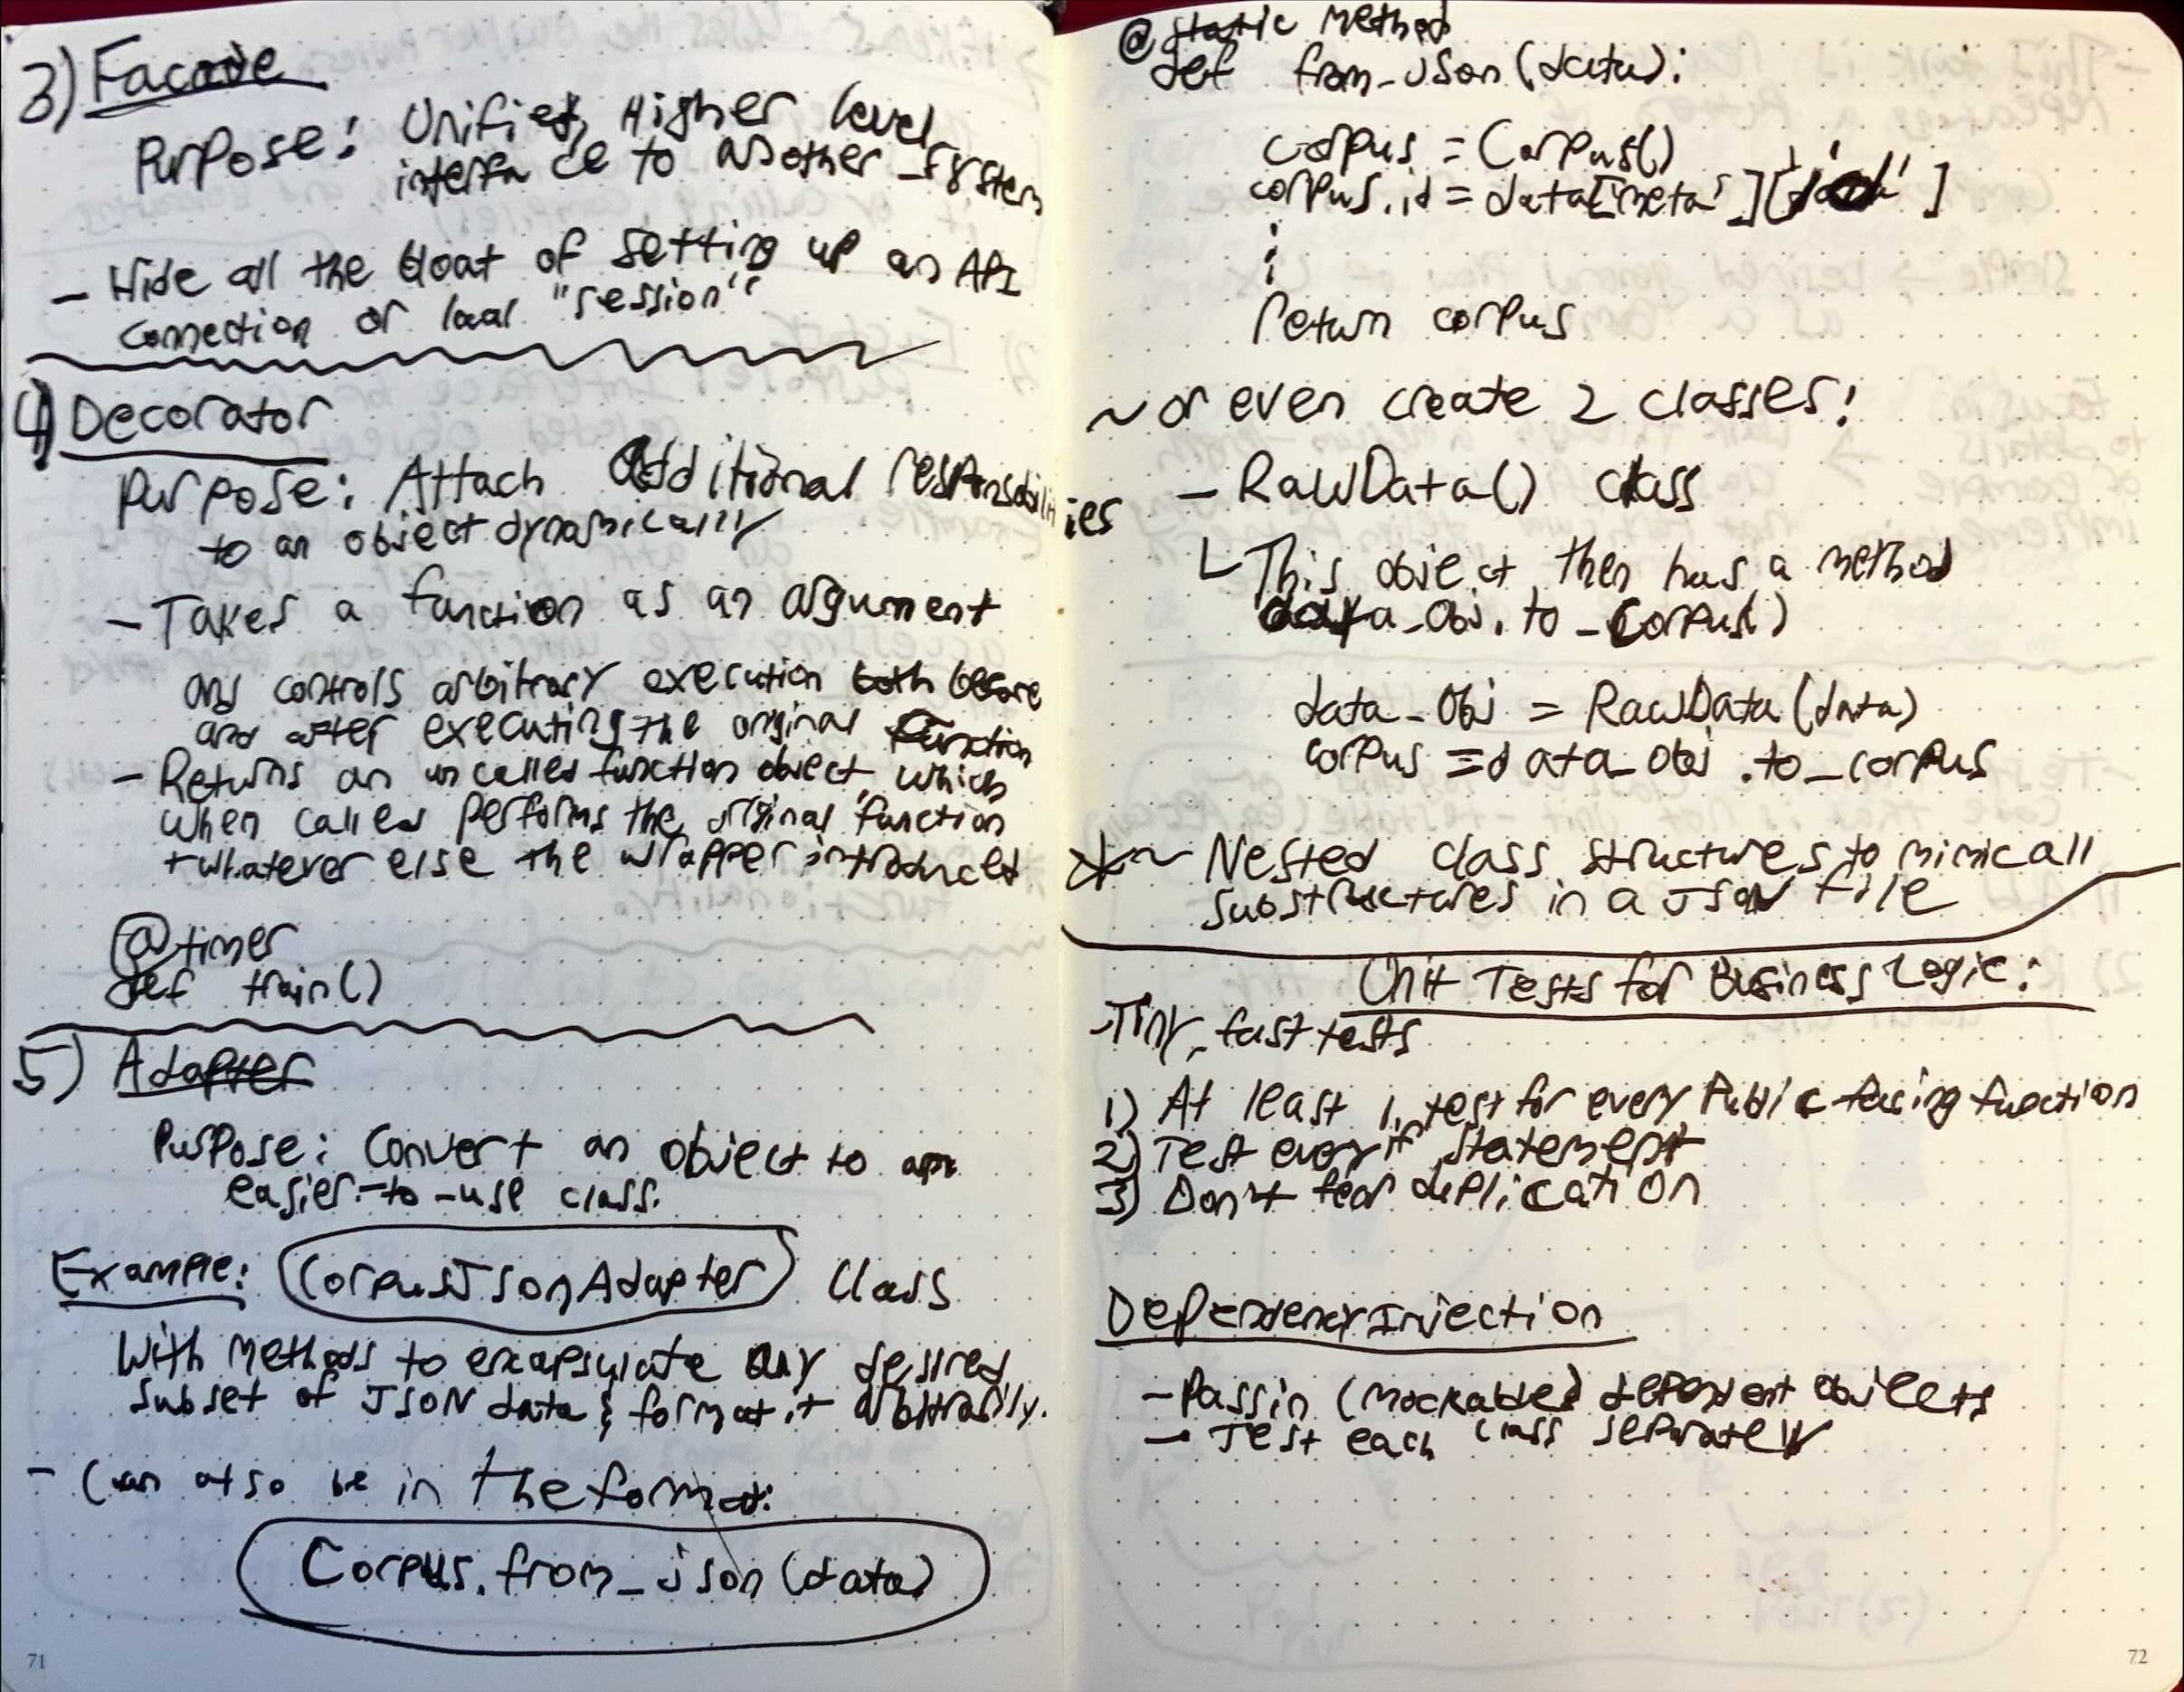 3) Facade
Purpose: Unified, Higher level
interface to another system
- Hide all the bloat of setting up an API
connection or local "session"
4) Decorator
Purpose: Attach additional responsabilities
to an object dynamically
- Takes a function as an argument
and controls arbitrary execution both before
and after executing the original function
- Returns an uncalled function object, which
when called performs the original function
+ whatever else the wrapper introduced
@timer
def train()
5) Adapter
Purpose: Convert an object to an
easier-to-use class.
Example: CorpusJsonAdapter Class
With methods to encapsulate any desired
subset of JSON data & format it arbitrarily.
- Can also be in the format:
Corpus.from_json(data)
71
@static method
def from_json(data):
corpus = Corpus()
corpus.id = data['meta']['id']
:
return corpus
~ or even create 2 classes!
- RawData() class
This object then has a method
data_obj.to_corpus()
data_obj = RawData(data)
corpus = data_obj.to_corpus
* ~ Nested class structures to mimic all
substructures in a JSON file
Unit Tests for Business Logic:
- Tiny, fast tests
1) At least 1 test for every public facing function
2) Test every if statement
3) Don't fear duplication
Dependency Injection
- Pass in (mockable) dependent objects
- Test each class separately
72